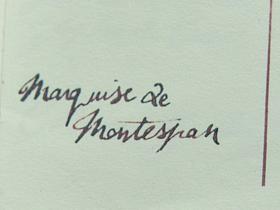 Marquise de
Montespan